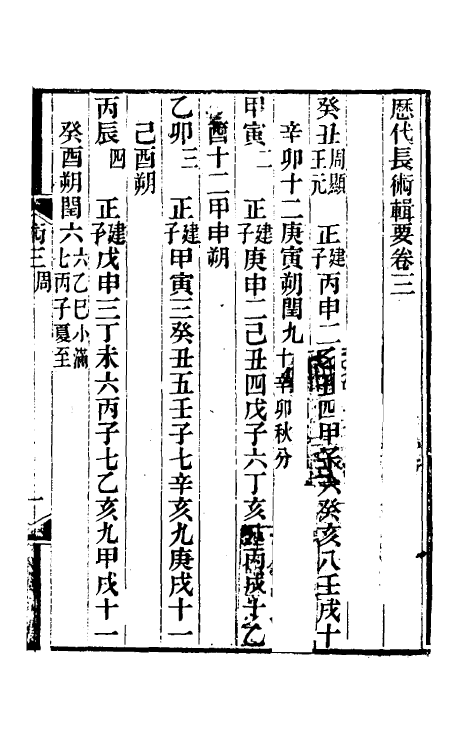 歷代長術輯要卷三
癸丑周顯王元 正建子丙申二乙丑四甲子六癸亥八壬戌十
辛卯十二庚寅朔閏九十辛卯秋分
甲寅二 正建子庚申二己丑四戊子六丁亥丙戌十乙
酉十二甲申朔
乙卯三 正建子甲寅三癸丑五壬子七辛亥九庚戌十一
己酉朔
丙辰四 正建子戊申三丁未六丙子七乙亥九甲戌十一
癸酉朔閏六六乙巳小滿七丙子夏至
術三周